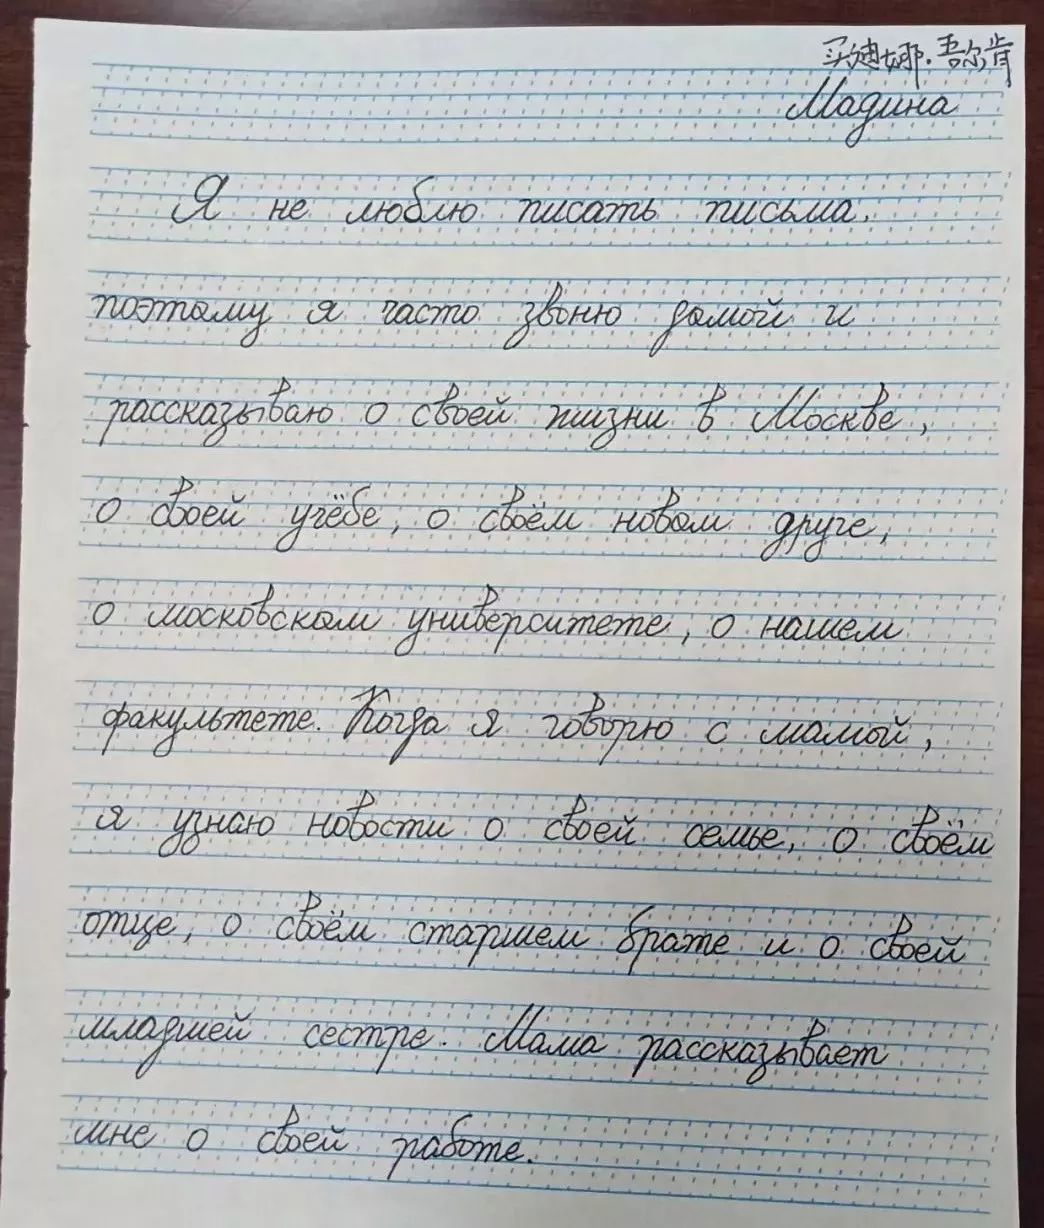 买迪娜·吾尔肯
Мадина
Я не люблю писать письма,
поэтому я часто звоню домой и
рассказываю о своей жизни в Москве,
о своей учёбе, о своём новом друге,
о московском университете, о нашем
факультете. Когда я говорю с мамой,
я узнаю новости о своей семье, о своём
отце, о своём старшем брате и о своей
младшей сестре. Мама рассказывает
мне о своей работе.